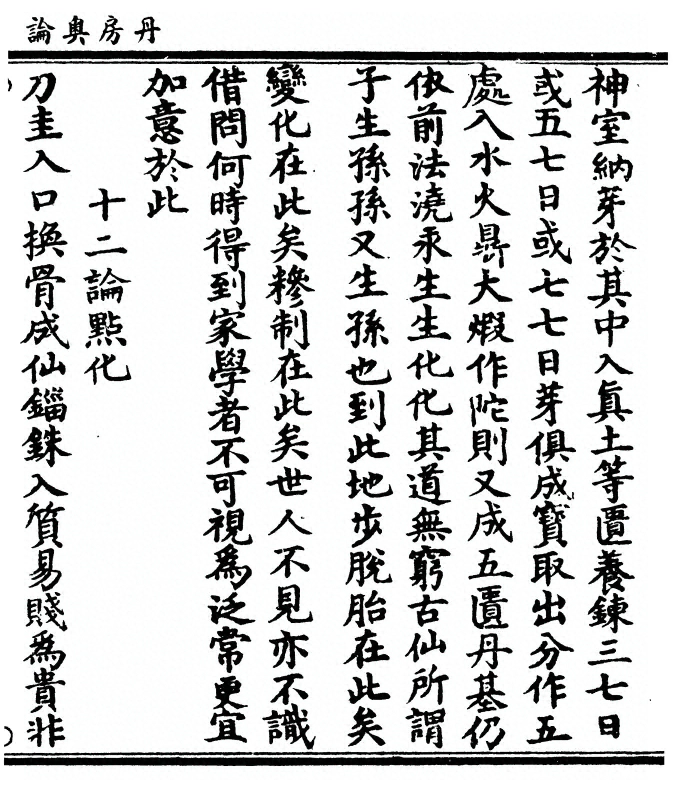 丹房奥論
神室納芽於其中入眞土等匱養鍊三七日
或五七日或七七日芽俱成寳取出分作五
處入水火鼎大煅作陀則又成五匱丹基仍
依前法澆汞生生化化其道無窮古仙所謂
子生孫孫又生孫也到此地步脫胎在此矣
變化在此矣糝制在此矣世人不見亦不識
借問何時得到家學者不可視爲泛常更宜
加意於此
十二論點化
刀圭入口換骨成仙錙銖入質易賤爲貴非